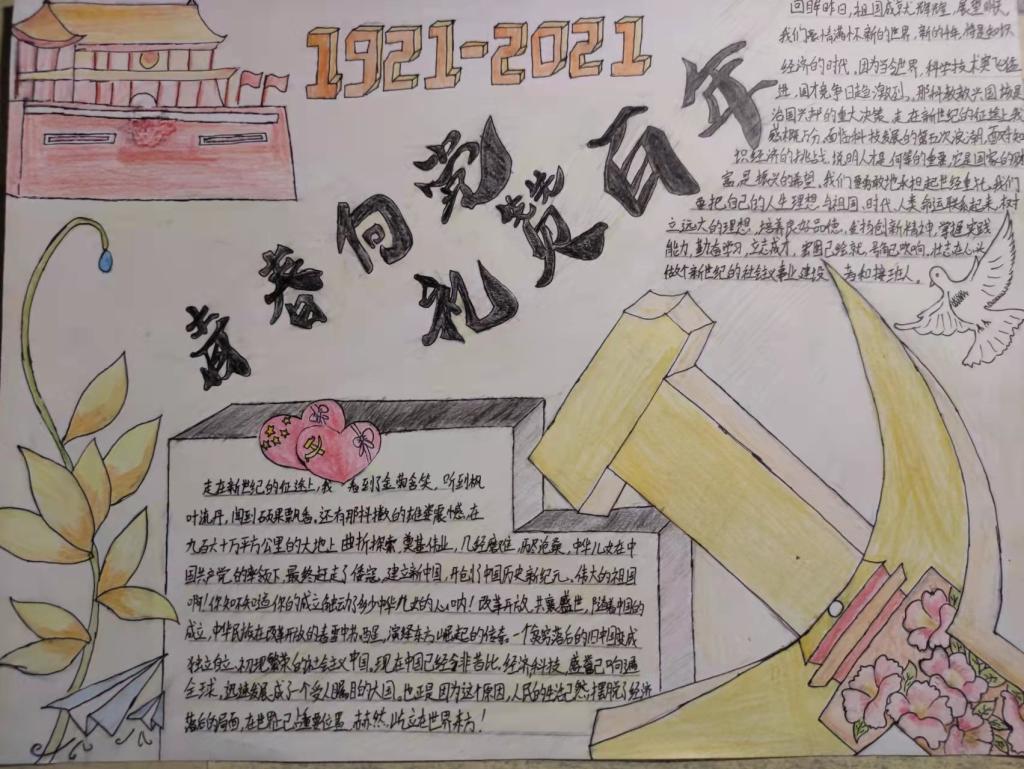 1921-2021
青春向党
礼赞百年
回眸昨日,祖国成就辉煌,展望明天,
我们激情满怀新的世界,新的
经济的时代,因为当今世界,科学技术突飞猛
进,国才竞争日趋激烈。那科教兴国
治国兴邦的重大决策,走在新世纪的征途上我
感概万分,面临科技发展的第五次浪潮,面对知
识经济的挑战,说明人才是何等的重要,它是国家的财
富,是振兴的希望,我们要勇敢地承担起世纪重托,我们
要把自己的人生理想与祖国、时代、人类命运联系起来,树
立远大的理想,培养良好品德,发扬创新精神,掌握实践
能力,勤奋学习,立志成才,蓝图已绘就,号角已吹响,壮志在心头
做个新世纪的社会主义事业建设者和接班人。
走在新世纪的征途上,我看到了金菊含笑,听到枫
叶流丹,闻到硕果飘香,还有那抖擞的雄姿震憾,在
九百六十万平方公里的大地上曲折探索,奠基伟业,几经磨难,历尽沧桑,中华儿女在中
国共产党的率领下,最终赶走了倭寇,建立新中国,开创了中国历史新纪元。伟大的祖国
啊!你知不知道你的成立触动了多少中华儿女的心呐!改革开放,共襄盛世,随着中国的
成立,中华民族在改革开放的春雷中苏醒,演绎东方崛起的传奇。一个贫穷落后的旧中国变成
独立自立,初现繁荣的社会主义中国,现在中国已经今非昔比,经济科技,蓝图已响遍
全球,迅速发展成了一个受人瞩目的大国,也正是因为这个原因,人民的生活已然摆脱了经济
落后的局面,在世界已占重要位置,赫然屹立在世界东方!